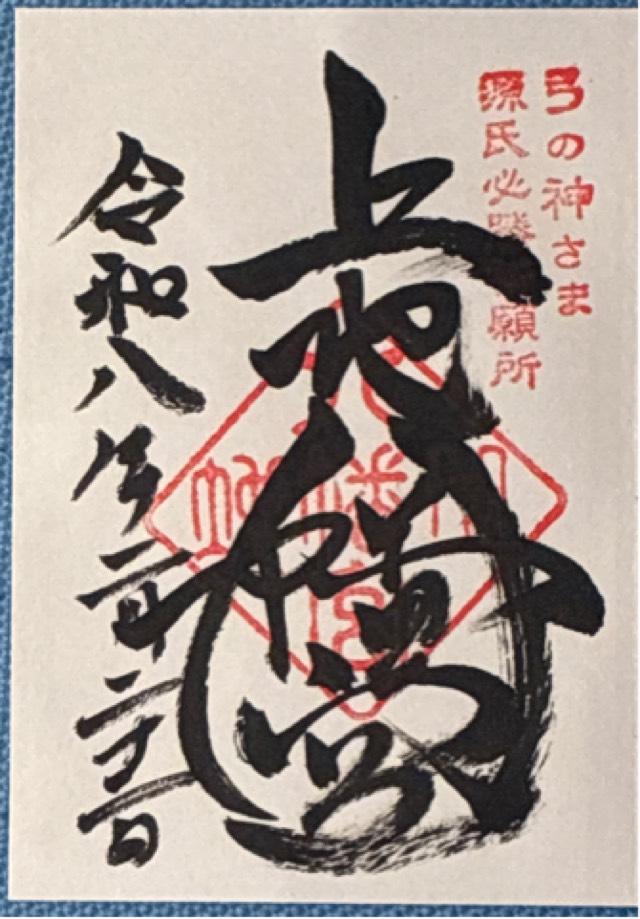 弓の神さま
源氏必勝祈願所
上地八幡宮
令和八年二月二十二日